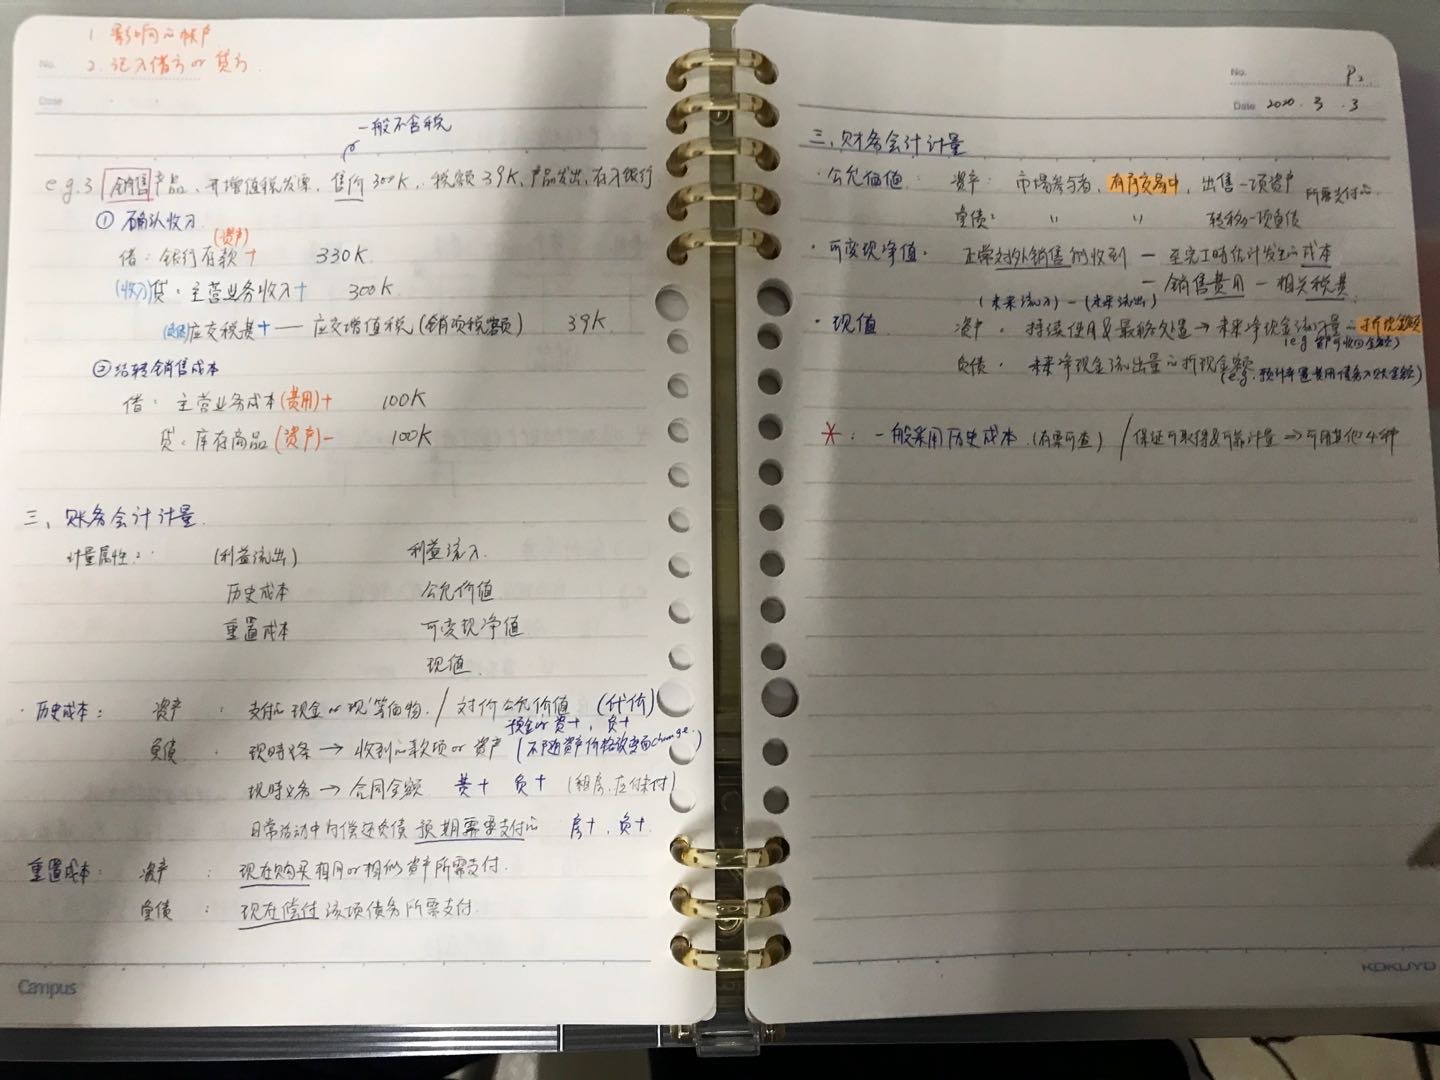 1. 影响的帐户
2. 记入借方or贷方.
No.
Date
一般不含税
e.g.3 销售产品、开增值税发票, 售价300K, 税额39K, 产品发出, 存入银行
① 确认收入
(资产)
借: 银行存款+ 330K
(收入)贷: 主营业务收入+ 300K
应交税费+ — 应交增值税(销项税额) 39K
②结转销售成本
借: 主营业务成本(费用)+ 100K
贷: 库存商品(资产)- 100K
三、财务会计计量.
计量属性: (利益流出) 利益流入.
历史成本 公允价值
重置成本 可变现净值
现值
·历史成本: 资产: 支付的现金or现等価物. / 对价公允价值 (代价)
现金or资+, 负+
负债: 现时义务 → 收到的款项or资产 (不随资产价格改变而change.)
现时义务 → 合同金额 费+ 负+ (租房,应付未付)
日常活动中为偿还负债预期需要支付的 房+, 负+.
重置成本: 资产: 现在购买相同or相似资产所需支付.
负债: 现在偿付该项债务所需支付.
Campus
No. P2.
Date 2020 . 3 . 3
三、财务会计计量
·公允価值: 资产: 市场参与者, 有序交易中, 出售一项资产 所需支付的.
负债: " " 转移一项负债
·可变现净值: 正常对外销售所收到 — 至完工时估计发生的成本
— 销售费用 — 相关税费.
(未来流入) - (未来流出)
·现值 资产: 持续使用&最终处置→未来净现金流入量的折现金额
(e.g. 资产可收回金额)
负债: 未来净现金流出量的折现金额
(e.g. 预计弃置费用债务入账金额)
*: 一般采用历史成本.(有票可查) / 保证可取得&可靠计量 ⇒ 可用其他4种
KOKUYO